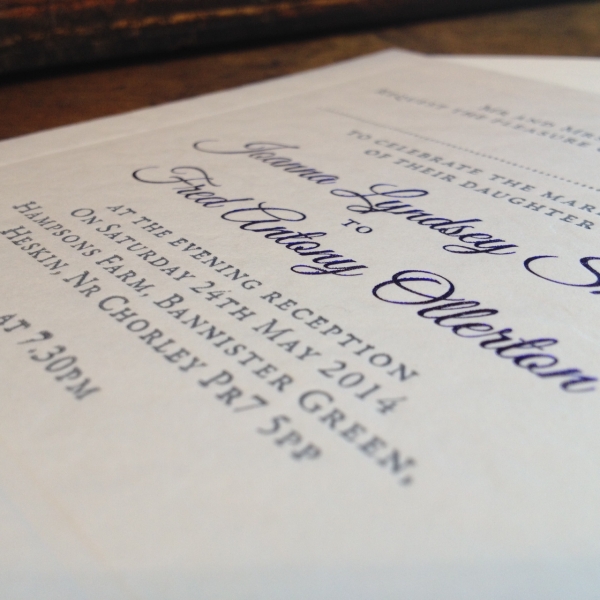 MR AND MRS
REQUEST THE PLEASURE
TO CELEBRATE THE MAR
OF THEIR DAUGHTER
Joanna Lyndsey S
TO
Fred Antony Ollerton
AT THE EVENING RECEPTION
ON SATURDAY 24TH MAY 2014
HAMPSONS FARM, BANNISTER GREEN,
HESKIN, NR CHORLEY PR7 5PP
AT 7.30PM